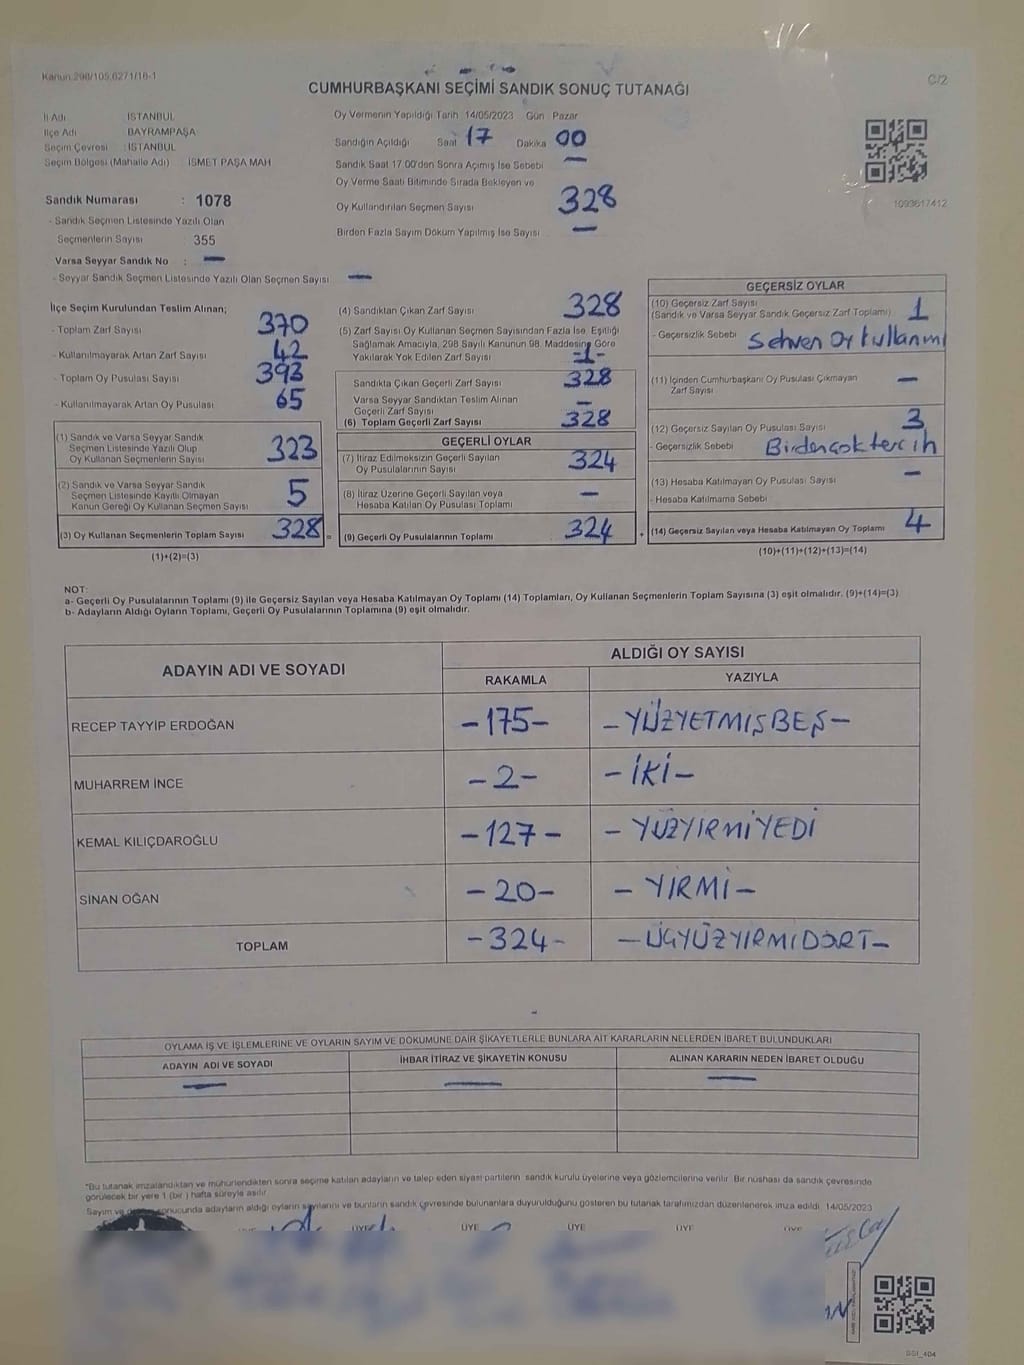 Kanun:298/105,6271/16-1
C/2
CUMHURBAŞKANI SEÇİMİ SANDIK SONUÇ TUTANAĞI
İl Adı İSTANBUL
İlçe Adı BAYRAMPAŞA
Seçim Çevresi : İSTANBUL
Seçim Bölgesi (Mahalle Adı) İSMET PAŞA MAH
Sandık Numarası : 1078
- Sandık Seçmen Listesinde Yazılı Olan
Seçmenlerin Sayısı : 355
Varsa Seyyar Sandık No : —
- Seyyar Sandık Seçmen Listesinde Yazılı Olan Seçmen Sayısı —
Oy Vermenin Yapıldığı Tarih 14/05/2023 Gün Pazar
Sandığın Açıldığı Saat 17 Dakika 00
Sandık Saat 17.00'den Sonra Açılmış İse Sebebi —
Oy Verme Saati Bitiminde Sırada Bekleyen ve
Oy Kullandırılan Seçmen Sayısı 328
Birden Fazla Sayım Döküm Yapılmış İse Sayısı —
1093617412
İlçe Seçim Kurulundan Teslim Alınan;
- Toplam Zarf Sayısı 370
- Kullanılmayarak Artan Zarf Sayısı 42
- Toplam Oy Pusulası Sayısı 393
- Kullanılmayarak Artan Oy Pusulası 65
(1) Sandık ve Varsa Seyyar Sandık
Seçmen Listesinde Yazılı Olup
Oy Kullanan Seçmenlerin Sayısı 323
(2) Sandık ve Varsa Seyyar Sandık
Seçmen Listesinde Kayıtlı Olmayan
Kanun Gereği Oy Kullanan Seçmen Sayısı 5
(3) Oy Kullanan Seçmenlerin Toplam Sayısı 328 =
(1)+(2)=(3)
(4) Sandıktan Çıkan Zarf Sayısı 328
(5) Zarf Sayısı Oy Kullanan Seçmen Sayısından Fazla İse, Eşitliği
Sağlamak Amacıyla, 298 Sayılı Kanunun 98. Maddesine Göre
Yakılarak Yok Edilen Zarf Sayısı
Sandıkta Çıkan Geçerli Zarf Sayısı 328
Varsa Seyyar Sandıktan Teslim Alınan
Geçerli Zarf Sayısı —
(6) Toplam Geçerli Zarf Sayısı 328
GEÇERLİ OYLAR
(7) İtiraz Edilmeksizin Geçerli Sayılan
Oy Pusulalarının Sayısı 324
(8) İtiraz Üzerine Geçerli Sayılan veya
Hesaba Katılan Oy Pusulası Toplamı —
(9) Geçerli Oy Pusulalarının Toplamı 324 +
GEÇERSİZ OYLAR
(10) Geçersiz Zarf Sayısı
(Sandık ve Varsa Seyyar Sandık Geçersiz Zarf Toplamı) 1
- Geçersizlik Sebebi Sehven Oy kullanmı
(11) İçinden Cumhurbaşkanı Oy Pusulası Çıkmayan
Zarf Sayısı —
(12) Geçersiz Sayılan Oy Pusulası Sayısı 3
- Geçersizlik Sebebi Birdençok tercih
(13) Hesaba Katılmayan Oy Pusulası Sayısı —
- Hesaba Katılmama Sebebi
(14) Geçersiz Sayılan veya Hesaba Katılmayan Oy Toplamı 4
(10)+(11)+(12)+(13)=(14)
NOT:
a- Geçerli Oy Pusulalarının Toplamı (9) ile Geçersiz Sayılan veya Hesaba Katılmayan Oy Toplamı (14) Toplamları, Oy Kullanan Seçmenlerin Toplam Sayısına (3) eşit olmalıdır. (9)+(14)=(3)
b- Adayların Aldığı Oyların Toplamı, Geçerli Oy Pusulalarının Toplamına (9) eşit olmalıdır.
ADAYIN ADI VE SOYADI
ALDIĞI OY SAYISI
RAKAMLA YAZIYLA
RECEP TAYYİP ERDOĞAN -175- -YÜZYETMİŞBEŞ-
MUHARREM İNCE -2- -İKİ-
KEMAL KILIÇDAROĞLU -127- -YÜZYİRMİYEDİ
SİNAN OĞAN -20- -YİRMİ-
TOPLAM -324- -ÜÇYÜZYİRMİDÖRT-
OYLAMA İŞ VE İŞLEMLERİNE VE OYLARIN SAYIM VE DÖKÜMÜNE DAİR ŞİKAYETLERLE BUNLARA AİT KARARLARIN NELERDEN İBARET BULUNDUKLARI
ADAYIN ADI VE SOYADI İHBAR İTİRAZ VE ŞİKAYETİN KONUSU ALINAN KARARIN NEDEN İBARET OLDUĞU
— — —
*Bu tutanak imzalandıktan ve mühürlendikten sonra seçime katılan adayların ve talep eden siyasi partilerin sandık kurulu üyelerine veya gözlemcilerine verilir. Bir nüshası da sandık çevresinde
görülecek bir yere 1 (bir) hafta süreyle asılır.
Sayım ve döküm sonucunda adayların aldığı oyların sayılarını ve bunların sandık çevresinde bulunanlara duyurulduğunu gösteren bu tutanak tarafımızdan düzenlenerek imza edildi. 14/05/2023
ÜYE ÜYE ÜYE ÜYE ÜYE
SSI_404